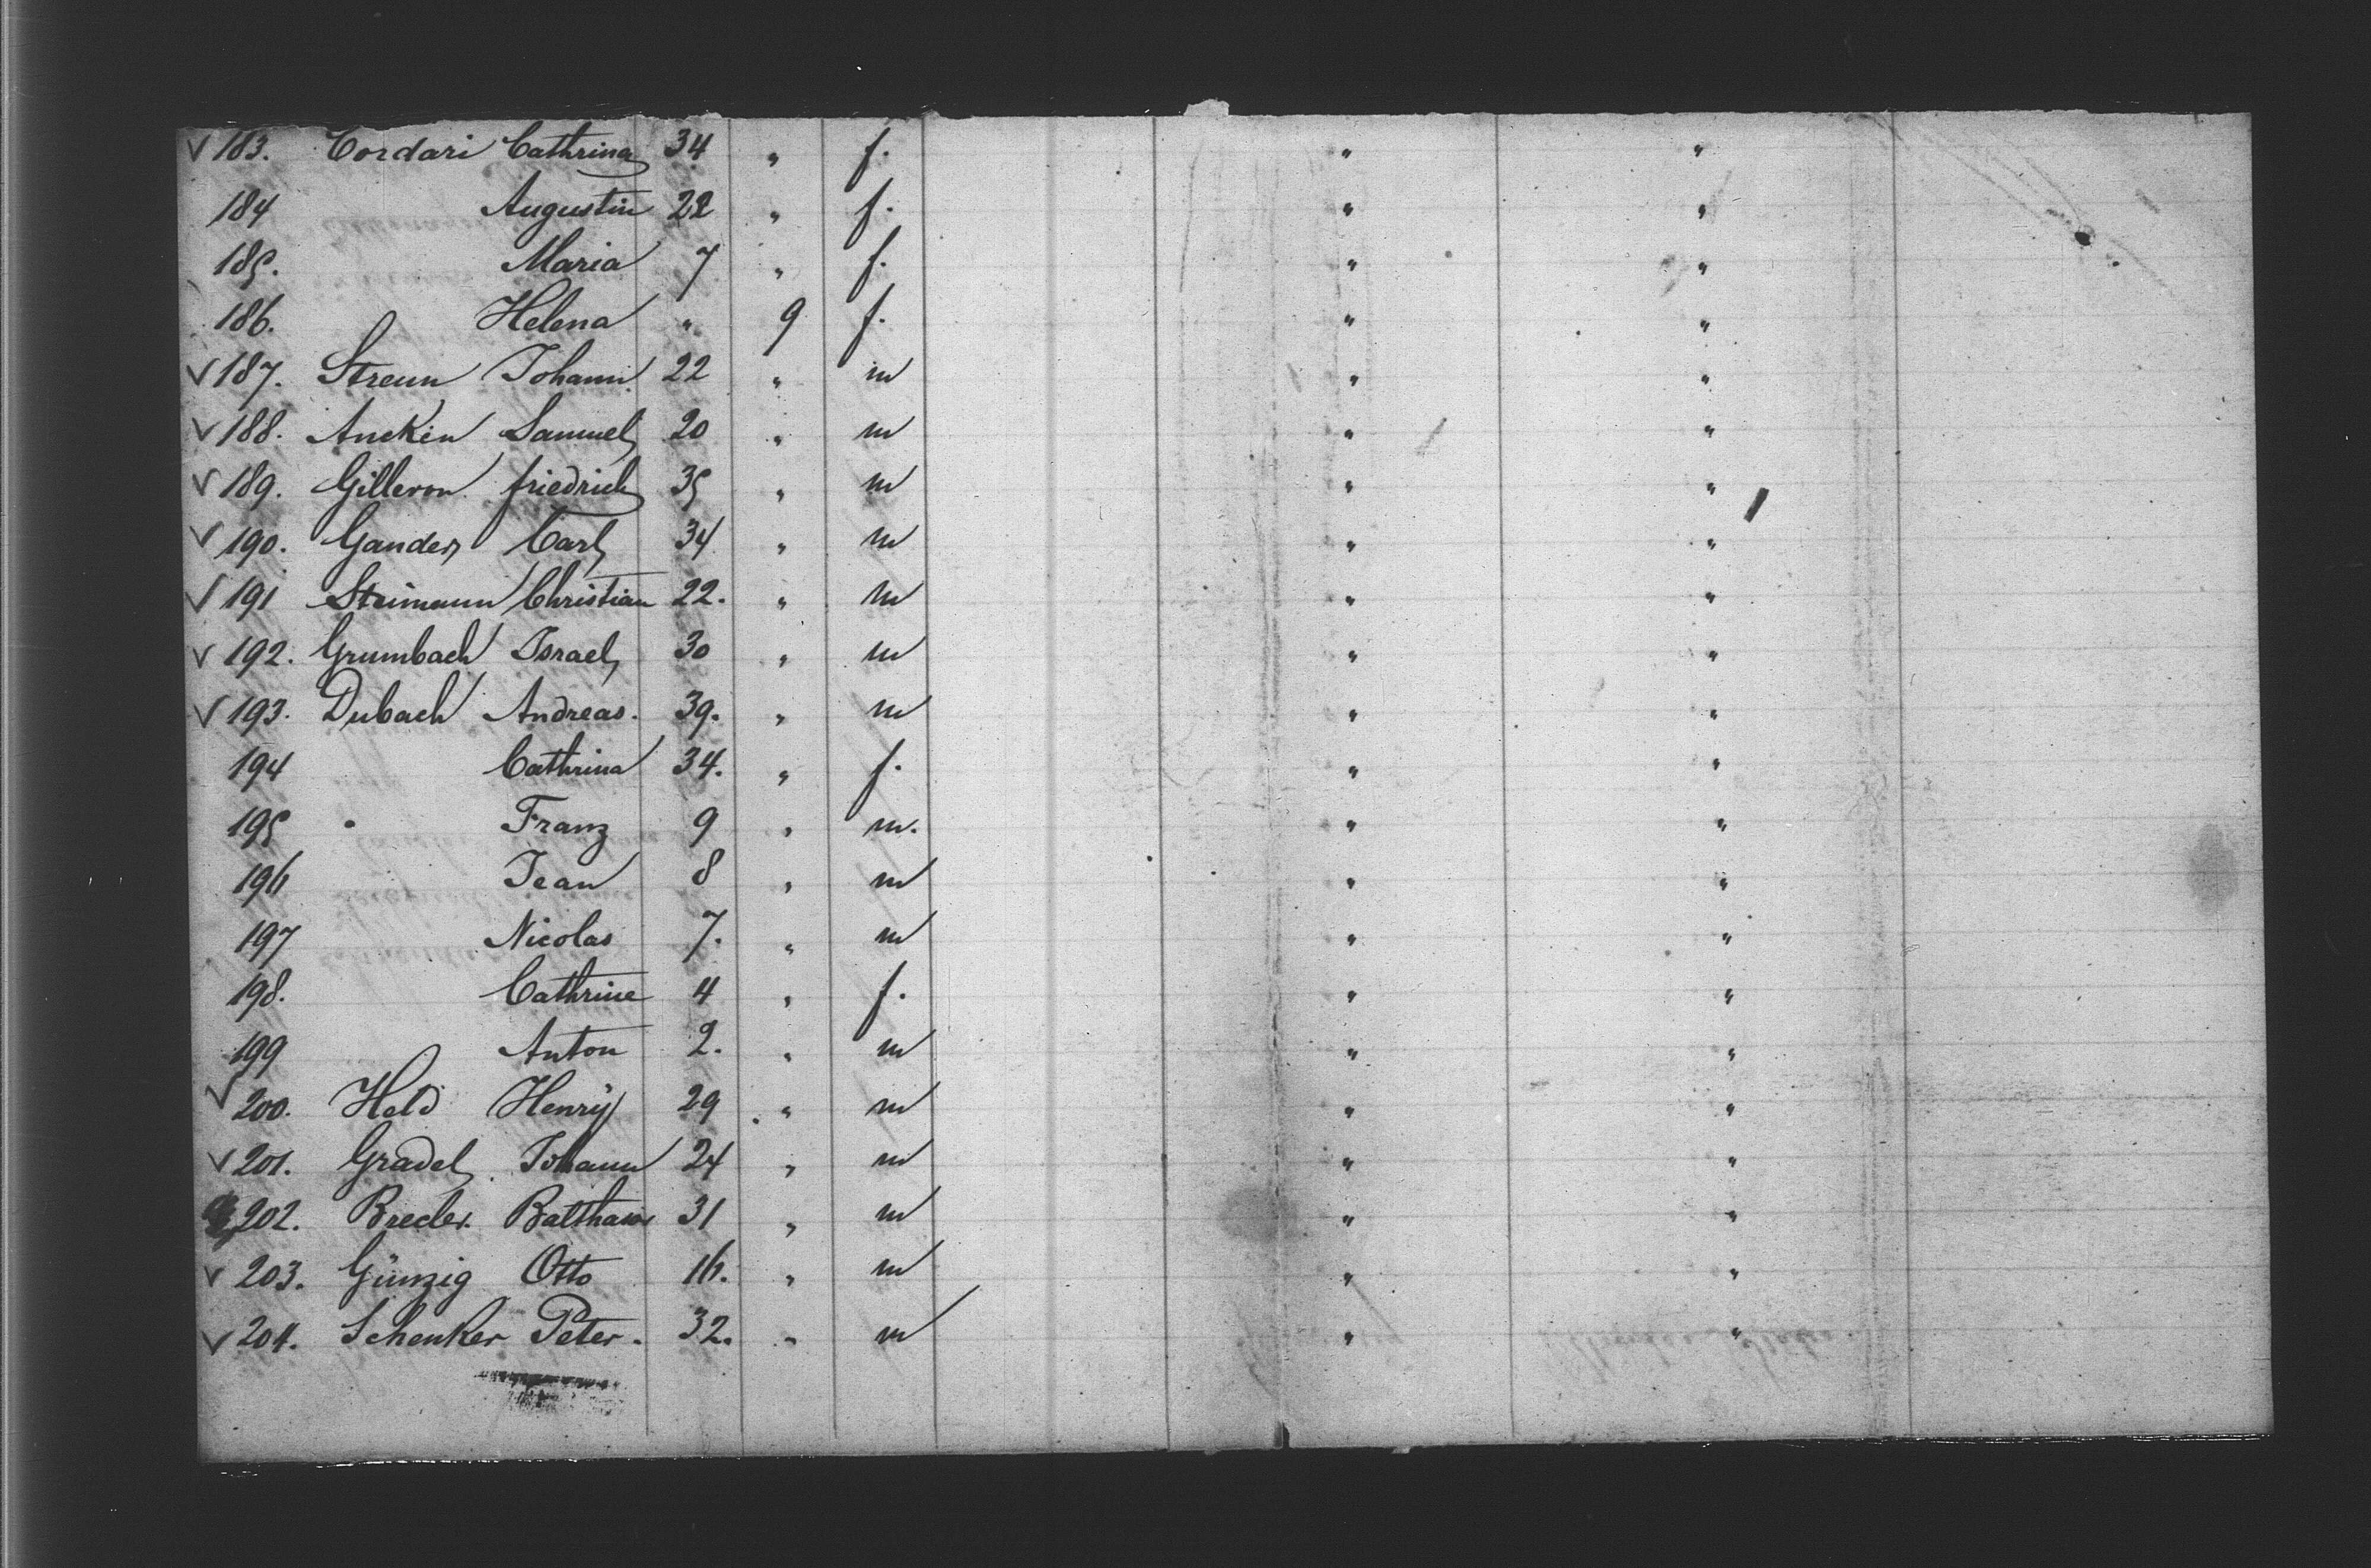 √ 183. Cordari Cathrina 34 " f. " "
184 Augustin 22 " f. " "
185. Maria 7 " f. " "
186. Helena " 9 f. " "
√ 187. Streun Johann 22 " m " "
√ 188. Aneken Samuel 20 " m " "
√ 189. Gilleron friedrich 35 " m " "
√ 190. Gander Carl 34 " m " "
√ 191 Steimann Christian 22. " m " "
√ 192. Grumbach Israel 30 " m " "
√ 193. Dubach Andreas. 39. " m " "
194 Cathrina 34. " f. " "
195 Franz 9 " m. " "
196 Jean 8 " m " "
197 Nicolas 7. " m " "
198. Cathrine 4 " f. " "
199 Anton 2. " m " "
√ 200. Held Henrÿ 29 " m " "
√ 201. Gradel Johann 24 " m " "
202. Breder. 31 " m " "
√ 203. Günzig Otto 16. " m " "
√ 204. Schenker Peter. 32. " m " "